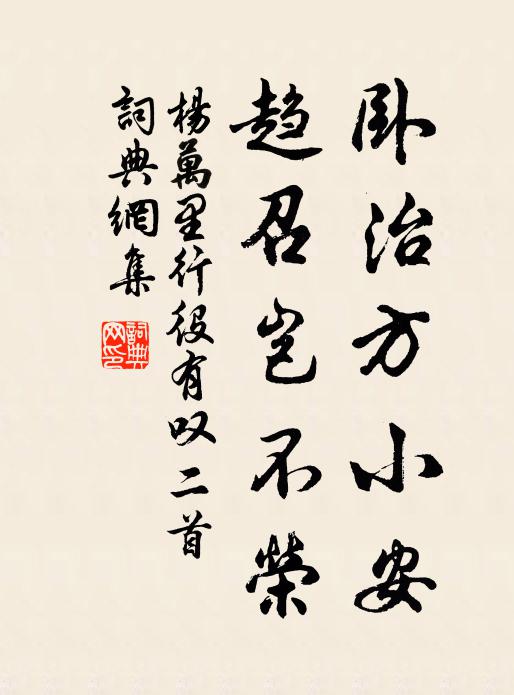 卧治方小安
趋召岂不榮
楊萬里行役有叹二首
詞典網集
詞典
网印